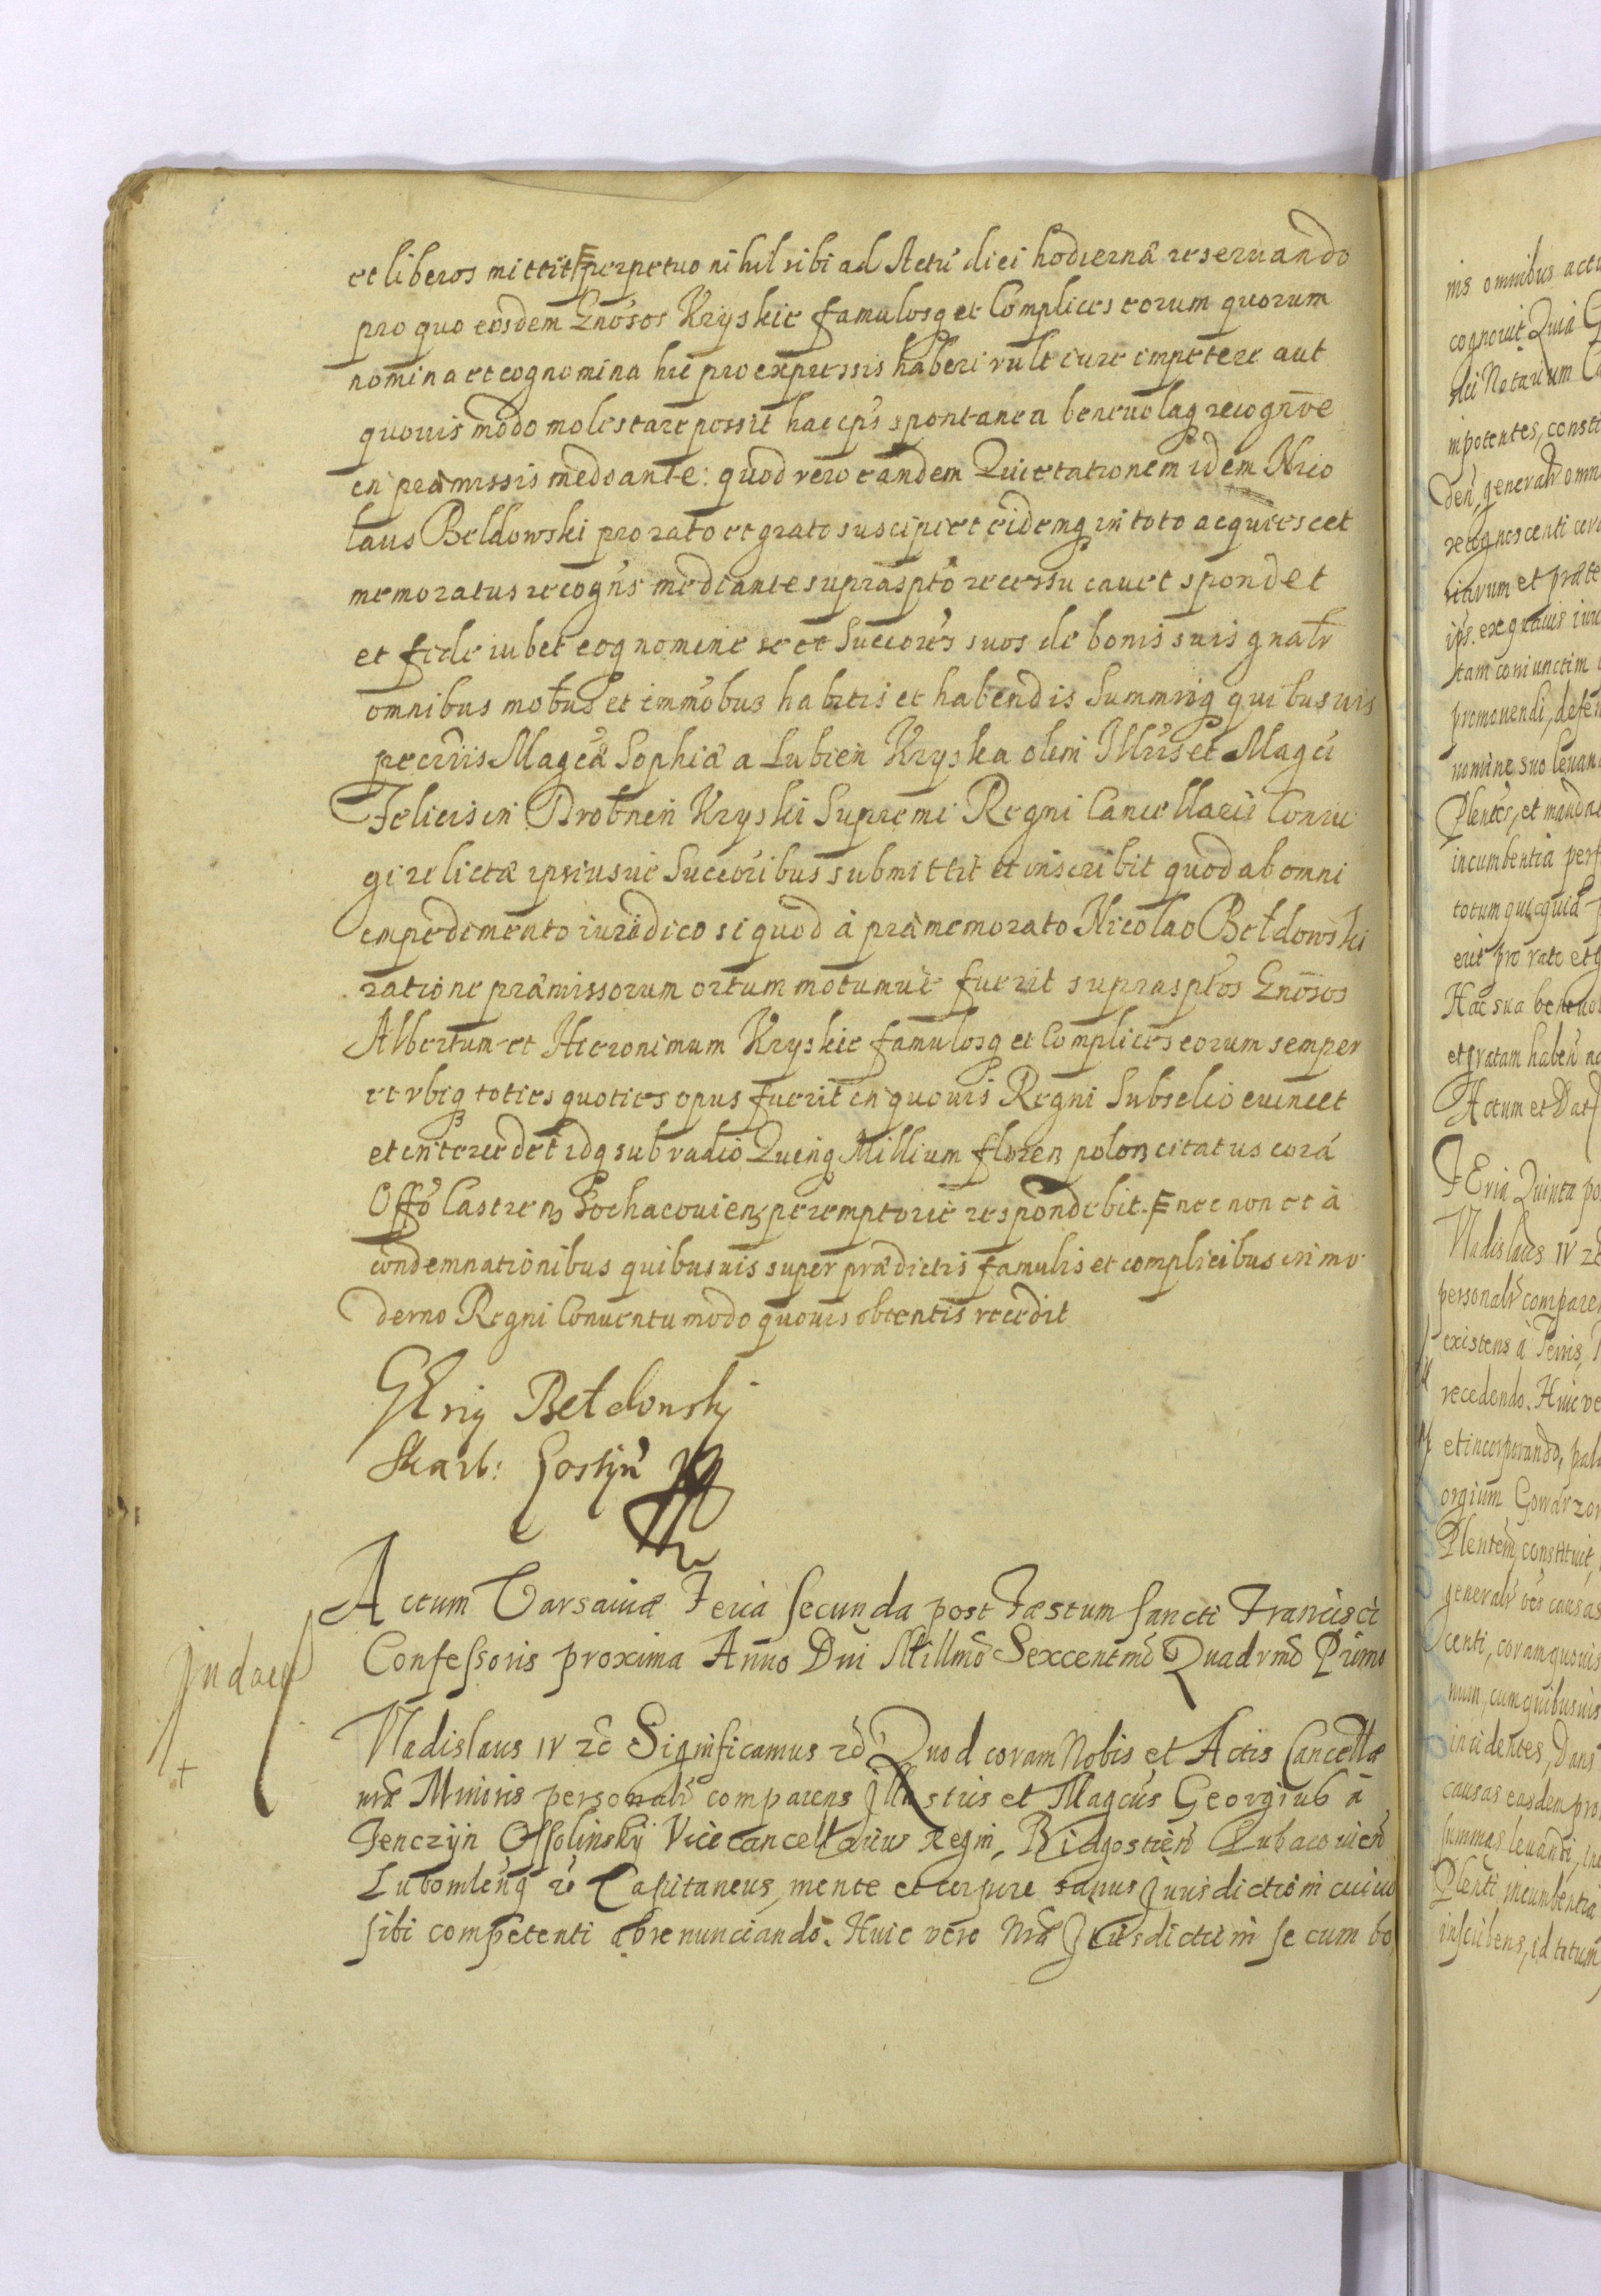 et liberos mittit perpetuo nihil sibi ad Actũ diei hodiernæ reseruando
pro quo eosdem Gnõsos Kryskie famulosq et Complices eorum quorum
nomina et cognomina hic pro expressis haberi vult iure impetere aut
quouis mõdo molestare possit hac ips spontanea beneuolaq recognẽ
in præmissis mediante: quod vero eandem Quietationem idem Nico
laus Bełdowski pro rato et grato suscipiet eidemq in toto acquiescet
memoratus recogñs mediante suprasptõ recessu cauet spondet
et fide iubet eoq nomine se et Succores suos de bonis suis gnalr
omnibus mobus et immobus habitis et habendis Summisq quibusuis
pecũriis Magcæ Sophiæ a Lubień Kryska olim Illris et Magci
Felicis in Drobnin Kryski Supremi Regni Cancellarii Coniu
gi relictæ ipsiusue Succoribus submittit et inscribit quod ab omni
empedimento iuridico si quod à præmemorato Nicolao Bełdowski
ratione præmissorum ortum motumue fuerit supraspłos Gnõsos
Albertum et Hieronimum Kryskie famulosq et Complices eorum semper
et vbiq toties quoties opus fuerit in quouis Regni Subselio euincet
et intercedet idq sub vadio Quinq Millium floren polon citatus corã
Offõ Castren Sochacouien peremptorie respondebit. nec non et à
condemnationibus quibusuis super prædictis famulis et complicibus in mo
derno Regni Conuentu modo quouis obtentis recedit
Bełdowski
Skarb: Gostyń
Judaeo
Actum Varsauiæ Feria Secunda post Fæstum Sancti Francisci
Confessoris proxima Anno Dni Millmõ Sexcentmõ Quadrmõ Primo
Vladislaus IV &c Significamus &c Quod coram Nobis et Actis Cancellæ
nræ Minoris personalr comparens Illustris et Magcus Georgius à
Tenczyn Ossolinsky Vicecancellarius Regni, Bidgostien Lubacouien
Lubomlenq &c Capitaneus, mente et corpore sanus Jurisdictioni cuiuis
sibi competenti abrenunciando. Huic vero Nræ Jurisdictioni se cum bo
nis omnibus
cognouit Quia
Notarium
impotentes,
den, generalr
recognoscenti
tam coniunctim
promouendi,
nomine suo
incumbentia
totum quicquid
erit pro rato et
Hac sua
et gratam
Actum et Dat
FEria Quinta
Vladislaus IV
personalr
existens à Terris,
recedendo. Huic
et incorporando,
orgium
Plentem, constituit,
generalr
centi, coram quouis
num, cum quibusuis
incidentes, Dans
causas easdem
summas leuandi,
Plenti incumbentia
inscribens, id totum